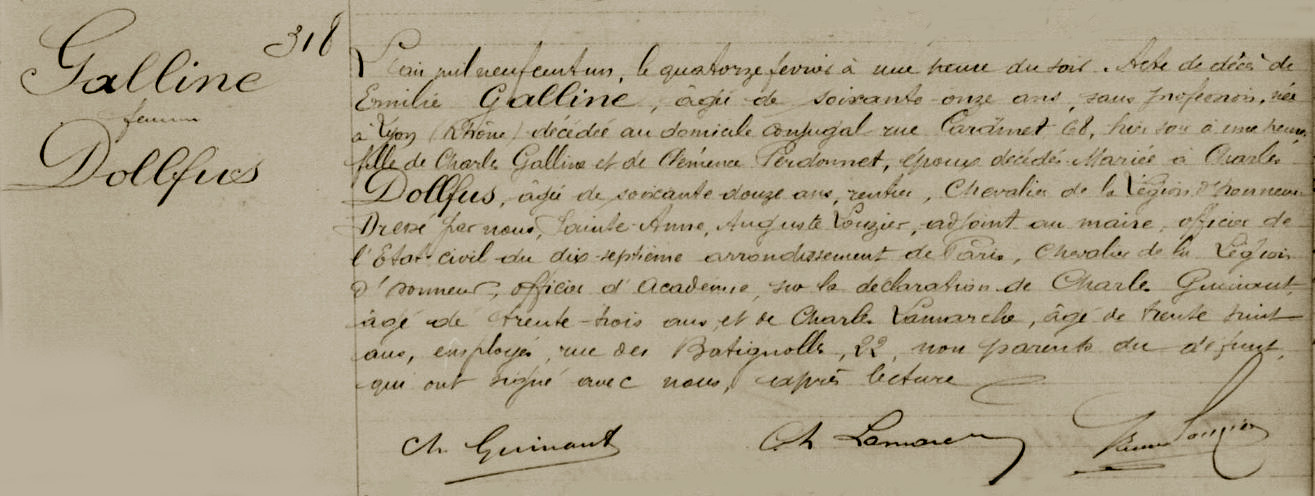 318
Galline
femme
Dollfus
L'an mil neuf cent un, le quatorze fevrier à une heure du soir. Acte de décès de
Emilie Galline, âgée de soixante onze ans, sans profession, née
à Lyon (Rhône) décédée au domicile conjugal rue Cardinet 68, hier soir à une heure,
fille de Charles Galline et de Clémence Perdonnet, époux décédés. Mariée à Charles
Dollfus, âgé de soixante-douze ans, rentier, Chevalier de la Légion d'honneur
Dressé par nous, Sainte-Anne, Auguste Louzier, adjoint au maire, officier de
l'Etat civil du dix-septième arrondissement de Paris, Chevalier de la Légion
d'honneur, officier d'Académie, sur la déclaration de Charles Guinant,
âgé de trente-trois ans, et de Charles Lamarche, âgé de trente huit
ans, employés, rue des Batignolles, 22, non parents du défunt,
qui ont signé avec nous, après lecture
Ch Guinant Ch Lamarche Louzier